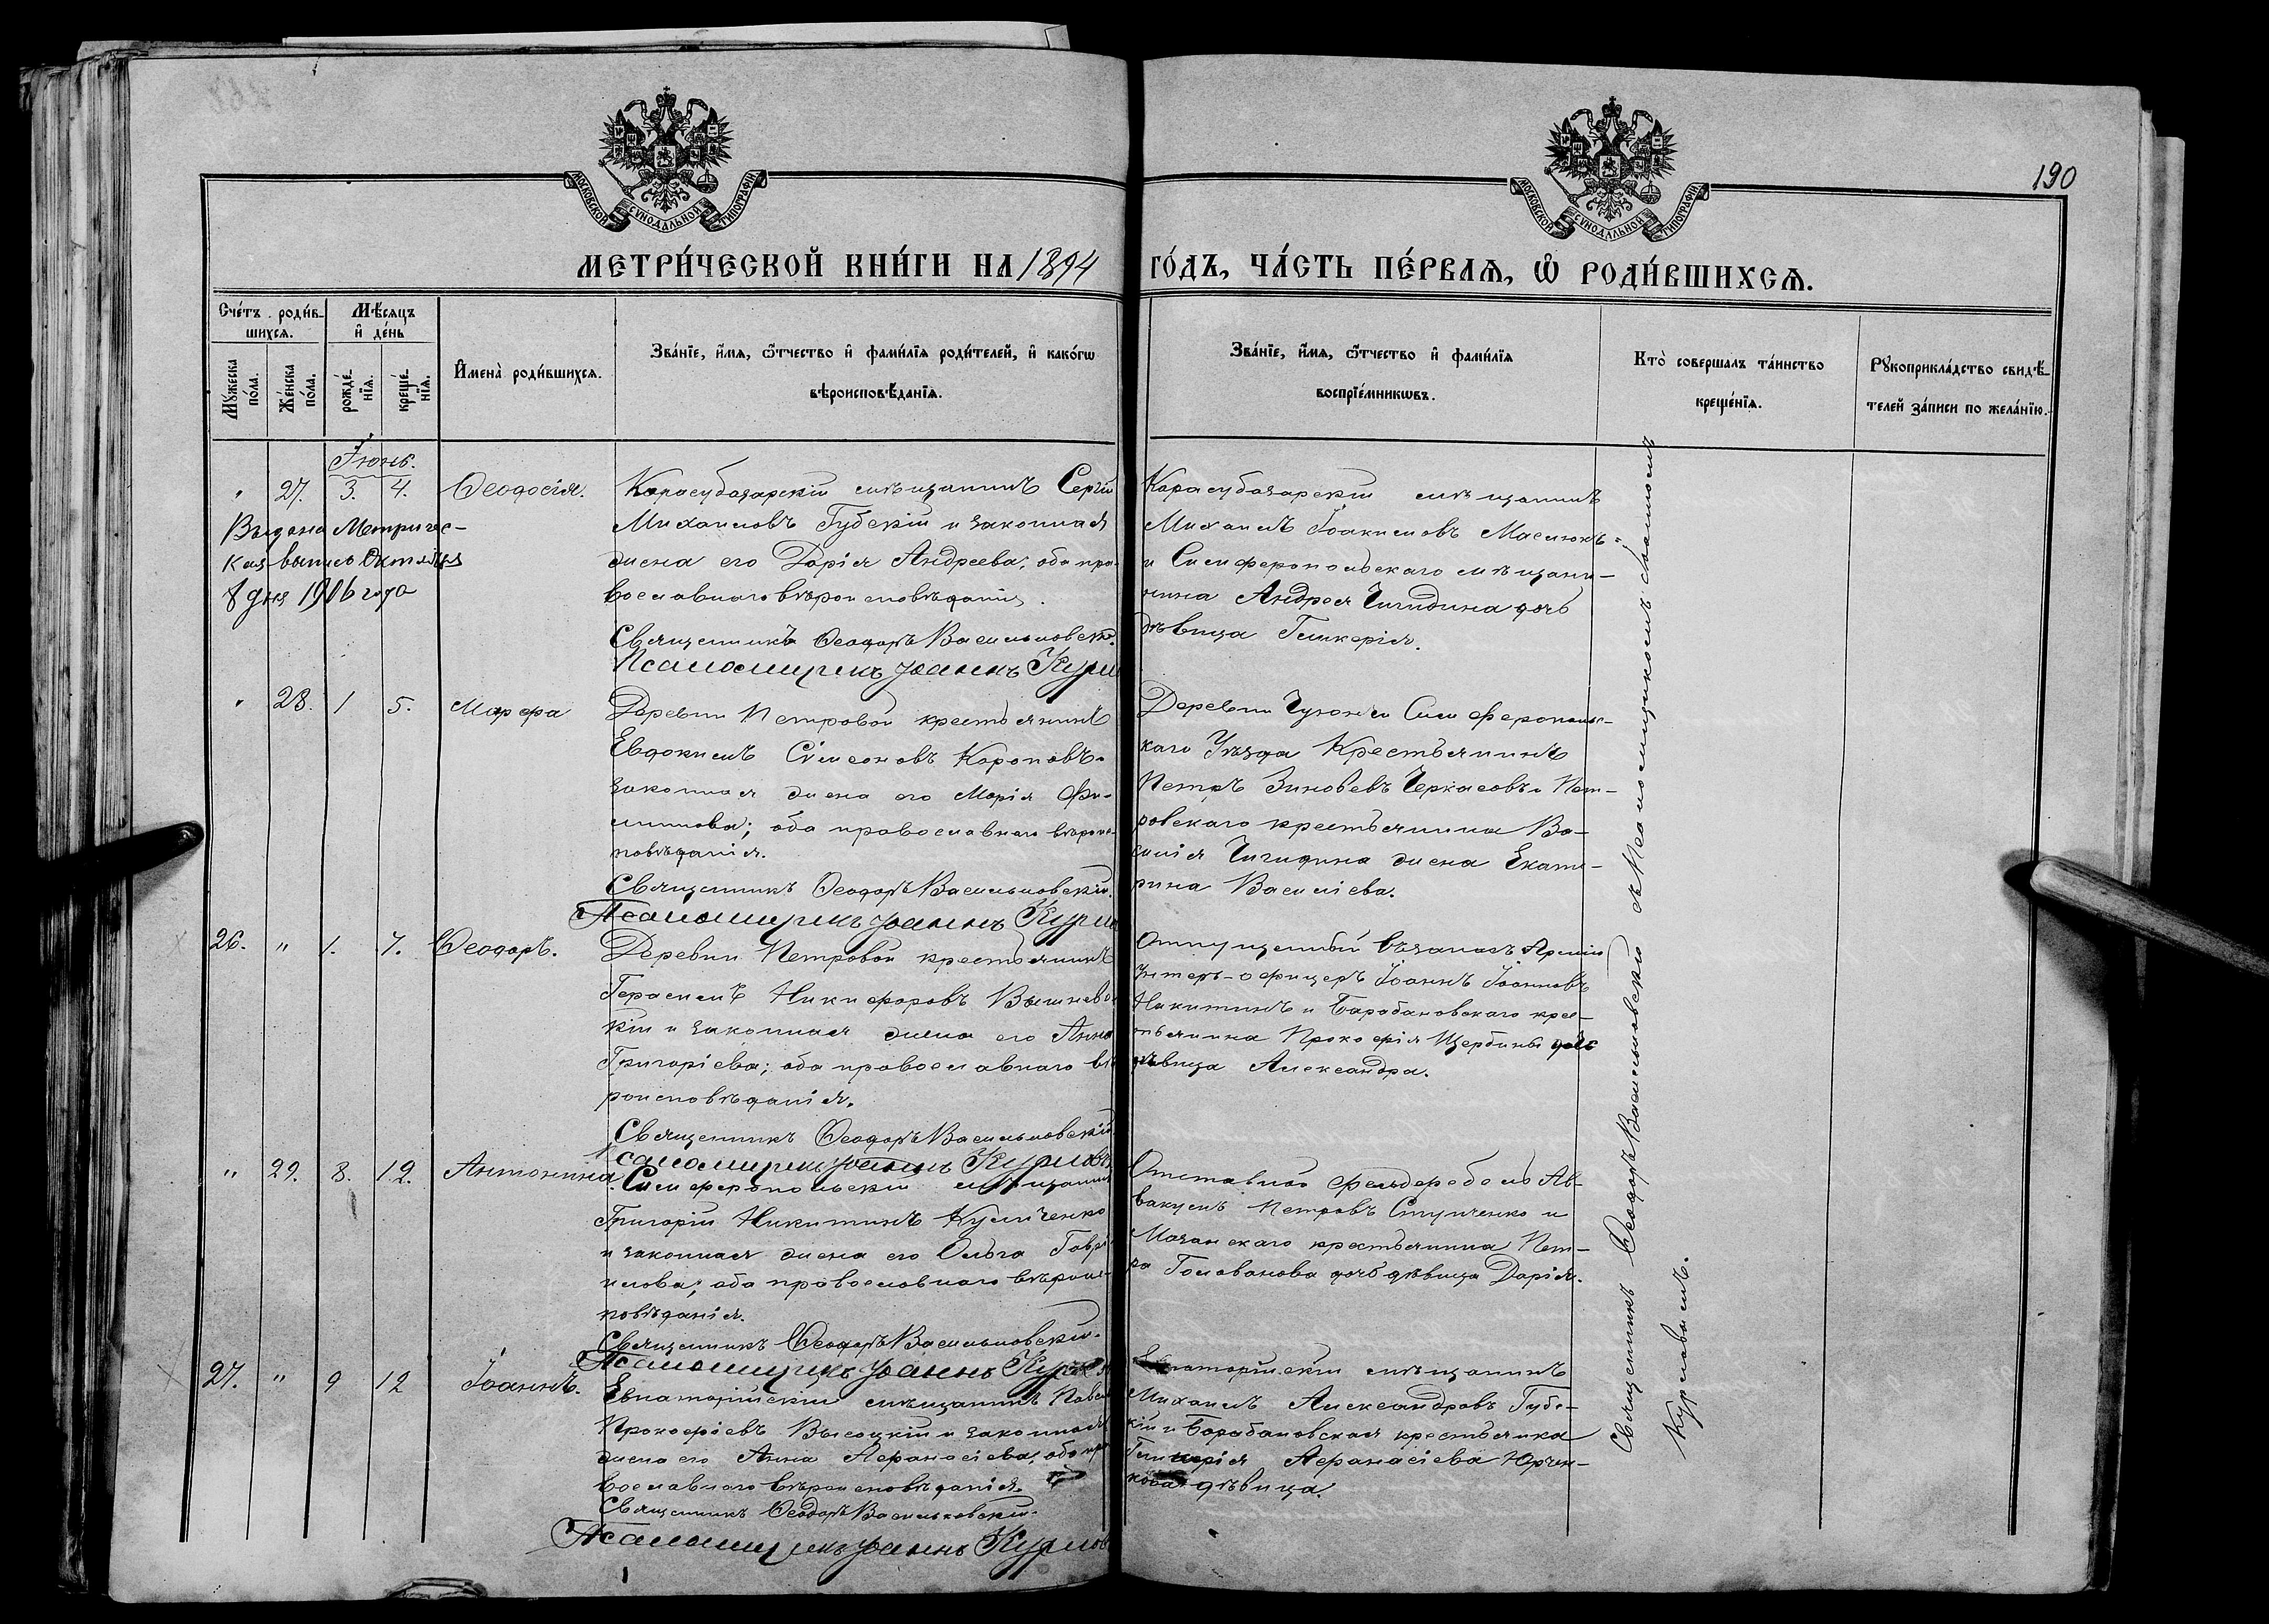 190
МОСКОВСКОЙ СѴНОДАЛЬНОЙ ТИПОГРАФІИ
МОСКОВСКОЙ СѴНОДАЛЬНОЙ ТИПОГРАФІИ
МЕТРИ́ЧЕСКОЙ КНИ́ГИ НА 1894
ГО́ДЪ, ЧА́СТЬ ПЕ́РВАѦ, Ѡ҆ РОДИ́ВШИХСѦ.
Сче́тъ роди́в-
шихсѧ.
Мѣ́сѧцъ
и҆ де́нь
Мꙋ́жеска
по́ла.
Же́нска
по́ла.
рожде́-
нїѧ.
креще́-
нїѧ.
И҆мена̀ роди́вшихсѧ.
Зва́нїе, и҆́мѧ, ѻ҆́тчество и҆ фами́лїѧ роди́телей, и҆ како́гѡ
вѣроисповѣ́данїѧ.
Зва́нїе, и҆́мѧ, ѻ҆́тчество и҆ фами́лїѧ
воспрїе́мникѡвъ.
Кто̀ соверша́лъ та́инство
креще́нїѧ.
Рꙋкоприкла́дство свидѣ́-
телей за́писи по жела́нїю.
Іюнь.
" 27. 3. 4. Ѳеодосія.
Выдана Метричес-
кая выпись Октября
8 дня 1906 года
Карасубазарскій мѣщанинъ Сергій
Михаиловъ Губскій и законная
жена его Дарія Андреева, оба пра-
вославнаго вѣроисповѣданія.
Священникъ Ѳеодоръ Васильковскій.
Псаломщикъ Іоаннъ
Карасубазарскій мѣщанинъ
Михаилъ Іоакимовъ Маслюкъ
и Симферопольскаго мѣщани-
нина Андрея Чигидина дочь
дѣвица Гликерія.
" 28. 1 5. Марѳа
Деревни Петровой крестьянинъ
Евдокимъ Сімеоновъ Короповъ
законная жена его Марія Фи-
липпова; оба православнаго вѣроис-
повѣданія.
Священникъ Ѳеодоръ Васильковскій.
Псаломщикъ Іоаннъ
Деревни Симферопольс-
каго Уѣзда Крестьянинъ
Петръ Зиновьевъ Черкасовъ и Пет-
ровскаго крестьянина Ва-
силія Чигидина жена Екате-
рина Василіева.
26. " 1. 7. Ѳеодоръ.
Деревни Петровой крестьянинъ
Герасимъ Никифоровъ Вышневс-
кій и законная жена его Анна
Григоріева; оба православнаго вѣ-
роисповѣданія.
Священникъ Ѳеодоръ Васильковскій.
Псаломщикъ Іоаннъ Курловъ
Отпущенный въ запасъ Арміи
Унтеръ-офицеръ Іоаннъ Іоанновъ
Никитинъ и Барабановскаго крес-
тьянина Прокофія Щербины дочь
дѣвица Александра.
" 29. 8. 12. Антонина
Симферопольскій мѣщанинъ
Григорій Никитинъ Куличенко
и законная жена его Ольга Гаврі-
илова; оба православнаго вѣроис-
повѣданія.
Священникъ Ѳеодоръ Васильковскій.
Псаломщикъ Іоаннъ
Отставной фельдфебель Ав-
вакумъ Петровъ Ступченко и
Мазанскаго крестьянина Пет-
ра Голованова дочь дѣвица Дарія.
27. " 9 12 Іоаннъ.
Евпаторійскій мѣщанинъ Павелъ
Прокофіевъ Высоцкій и законная
жена его Анна Аѳанасіева, оба пра-
вославнаго вѣроисповѣданія.
Священникъ Ѳеодоръ Васильковскій.
Псаломщикъ Іоаннъ Курловъ
Евпаторійскій мѣщанинъ
Михаилъ Александровъ Губс-
кій и Барабановская крестьянка
Гликерія Аѳанасіева Юрчен-
кова дѣвица.
Священникъ Ѳеодоръ Васильковскій съ Псаломщикомъ Іоанномъ
Курловымъ.